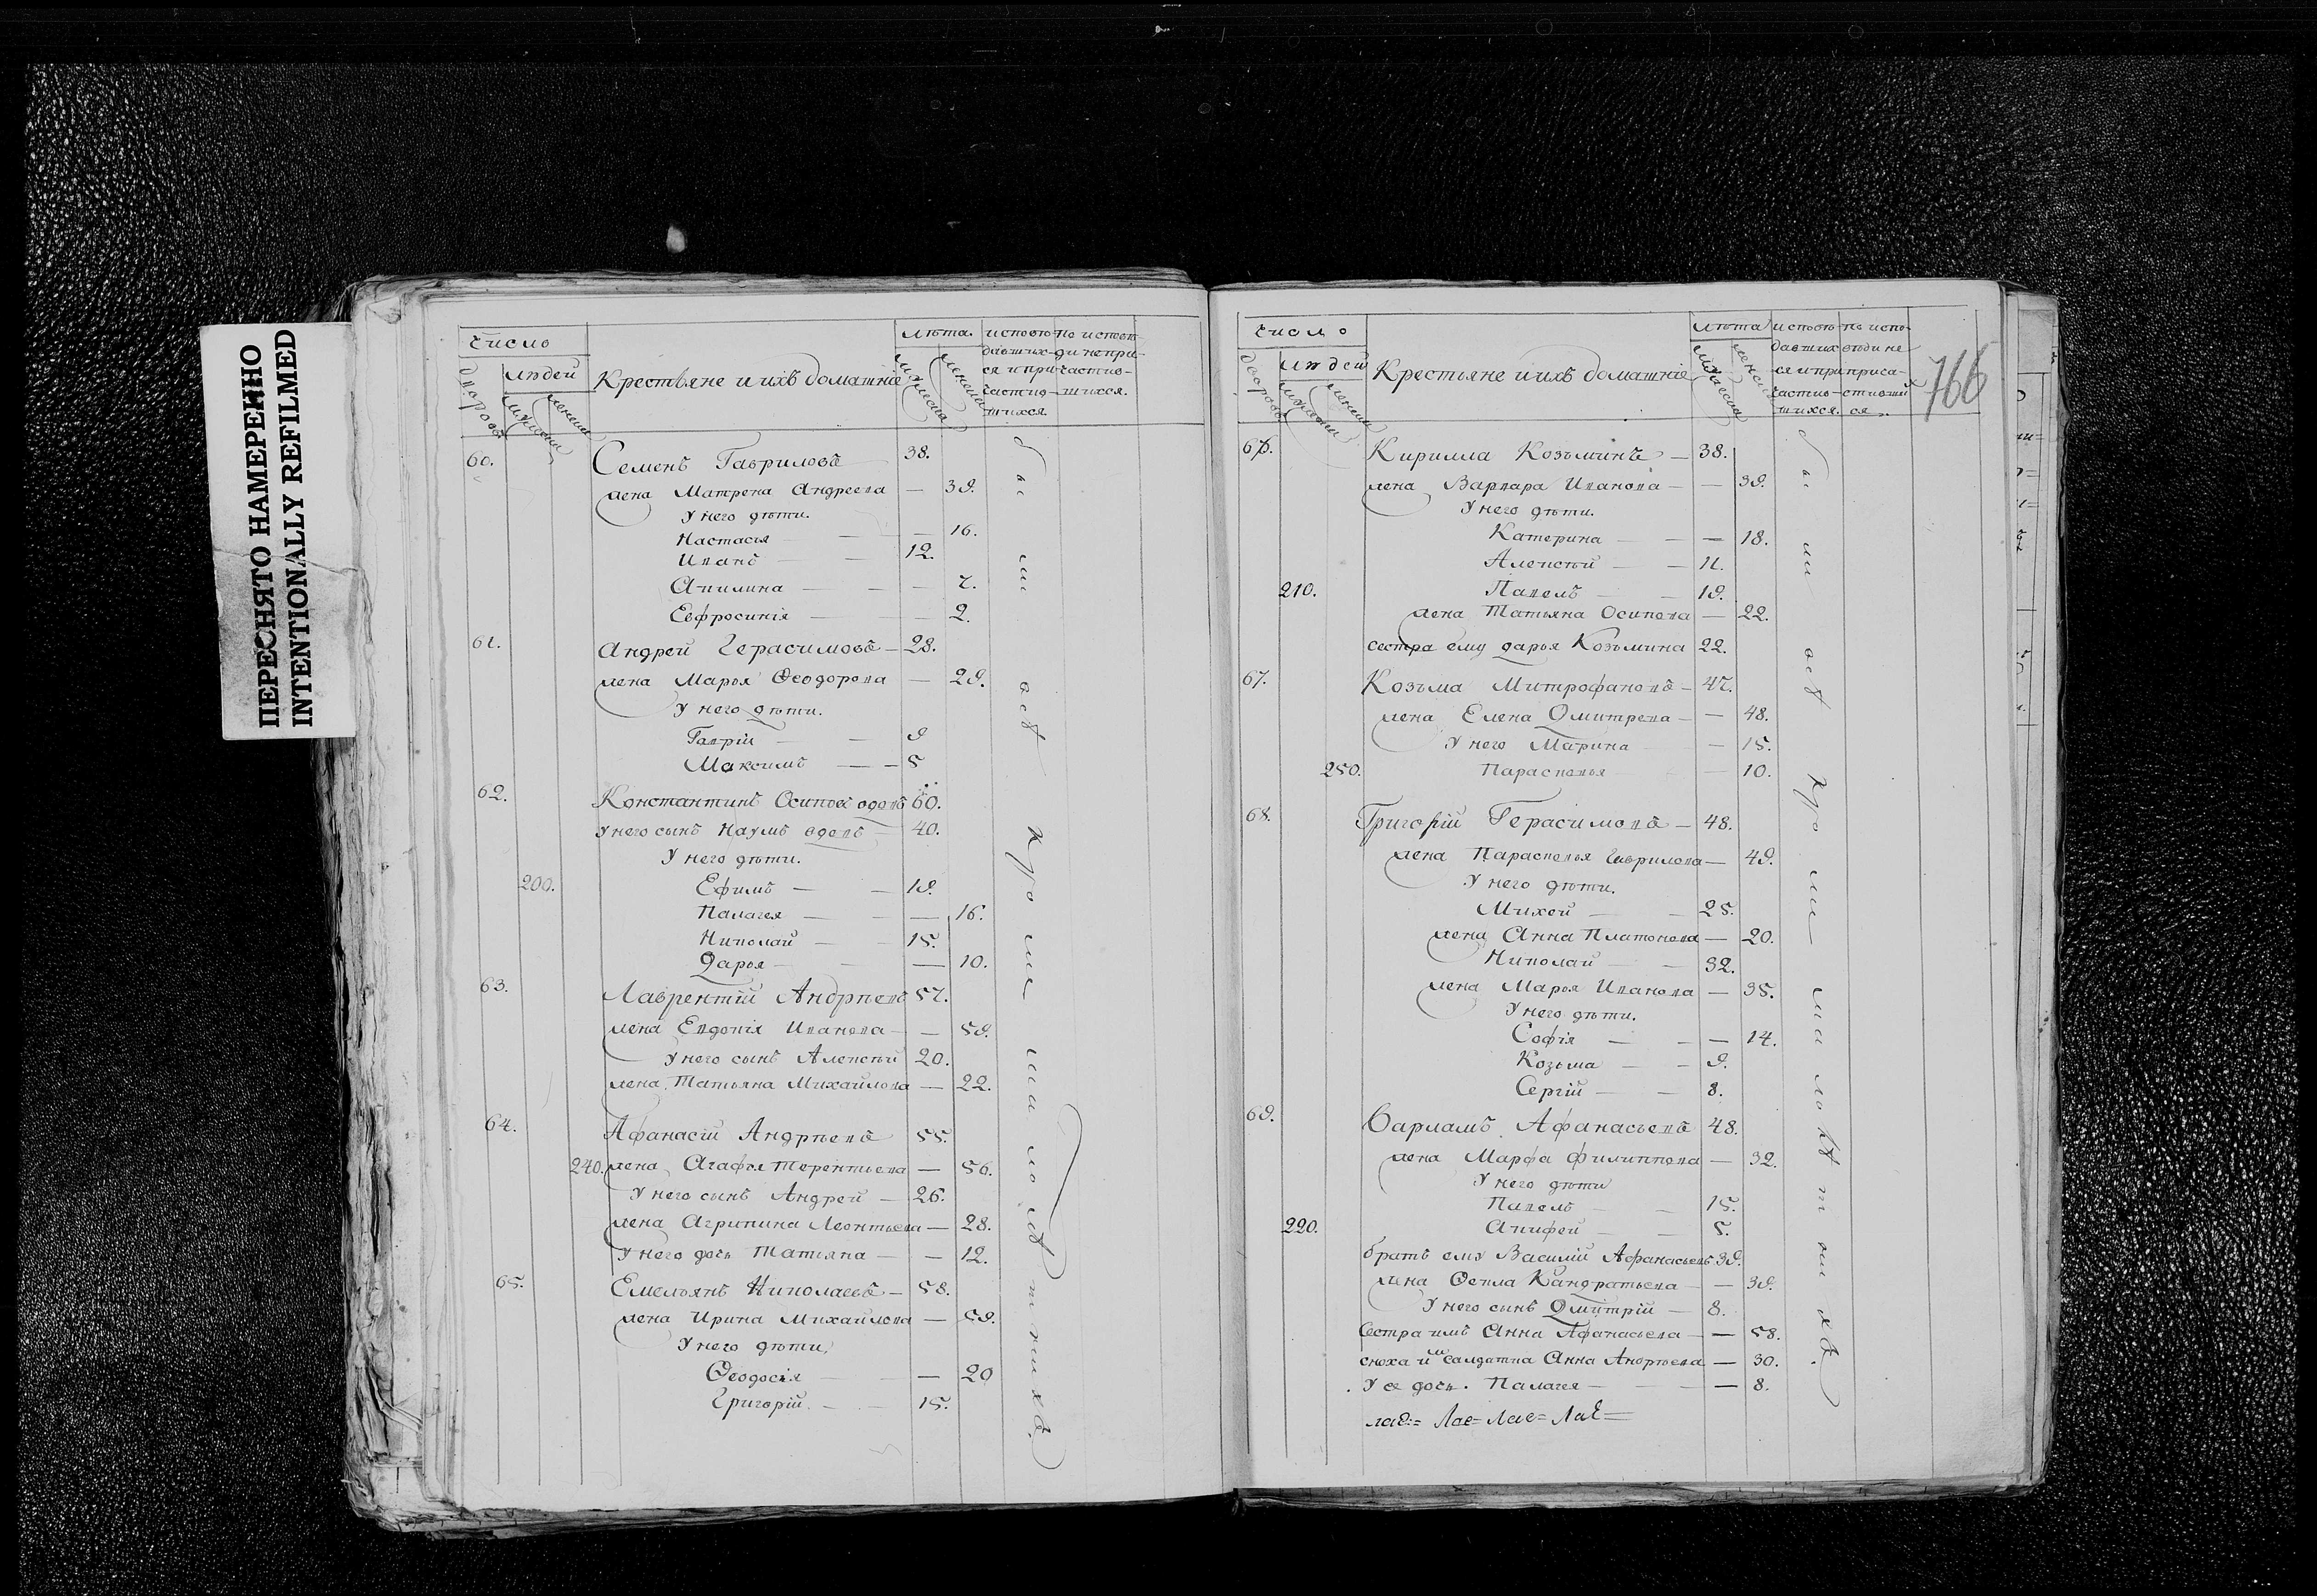 ПЕРЕСНЯТО НАМЕРЕННО
INTENTIONALLY REFILMED
Число
людей
дворовъ
мужеска
женска
Крестьяне и ихъ домашніе
лѣта.
мужеска
женска
исповѣ-
давших-
ся и при
частив-
шихся.
но исповѣ-
ди непри-
частив-
шихся.
60. Семенъ Гавриловъ 38.
жена Матрена Андреева — 39.
У него дѣти.
Настасья — — 16.
Иванъ — 12.
Акилина — — 7.
Евфросинія — — 2.
61. Андрей Герасимовъ — 28.
жена Марья Ѳеодорова — 29.
У него дѣти.
Гаврій — — 9
Максимъ — — 5
62. Константинъ Осиповъ вдовъ 60.
У него сынъ Наумъ вдовъ — 40.
У него дѣти.
200. Ефимъ — — 19.
Палагея — — — 16.
Николай — — 15.
Дарья — — — 10.
63. Лаврентій Андрѣевъ 57.
жена Евдокія Иванова — — 59.
У него сынъ Алексѣй 20.
жена Татьяна Михайлова — 22.
64. Афанасій Андрѣевъ 55.
240. жена Агафья Терентьева — 56.
У него сынъ Андрей — 26.
жена Агрипина Леонтьева — 28.
У него дочь Татіяна — — 12.
65. Емельянъ Николаевъ — 58.
жена Ирина Михайлова — 59.
У него дѣти,
Ѳеодосія — — 20
Григорій. — — 15.
бы ли всѣ кро ме ма ло лѣ т ни хъ.
Число
людей
дворовъ
мужеска
женска
Крестьяне и ихъ домашніе
лѣта
мужеска
женска
исповѣ-
давших
ся и при
частив-
шихся.
но испо-
вѣди не
приса-
стивши
ся.
766
66. Кирилла Козьминъ — 38.
жена Варвара Иванова — — 39.
У него дѣти.
Катерина — — — 18.
Алексѣй — — 11.
210. Павелъ — — 19.
жена Татьяна Осипова — 22.
сестра ему дарья Козьмина 22.
67. Козьма Митрофановъ — 47.
жена Елена Дмитрева — — 48.
У него Марина — — 15.
250. Парасковья — 10.
68. Григорій Герасимовъ — 48.
жена Парасковья Гаврилова — 49.
У него дѣти.
Михей — — 25.
жена Анна Платонова — 20.
Николай — — 32.
жена Марья Иванова — 35.
У него дѣти.
Софія — — — 14.
Козьма — — 9.
Сергій — — 8.
69. Варламъ Афанасьевъ 48.
жена Марфа Филиппова — 32.
У него дѣти
Павелъ — — 15.
220. Акифей — — 5.
братъ ему Василій Афанасьевъ 39.
жена Ѳекла Кандратьева — — 39.
У него сынъ Дмитрій — 8.
Сестра имъ Анна Афанасьева — — 58.
сноха им салдатка Анна Андрѣева — 30.
У ее дочь. Палагея — — — 8.
бы ли всѣ кро ме ма ло лѣ т ни хъ.